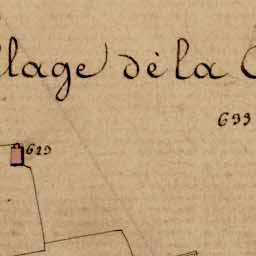 llage de la C
699
629